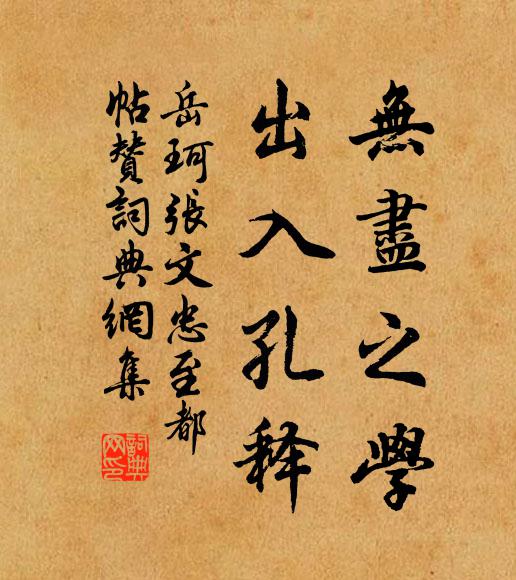 無盡之學
出入孔释
岳珂張文忠至都
帖赞詞典網集
詞典网印